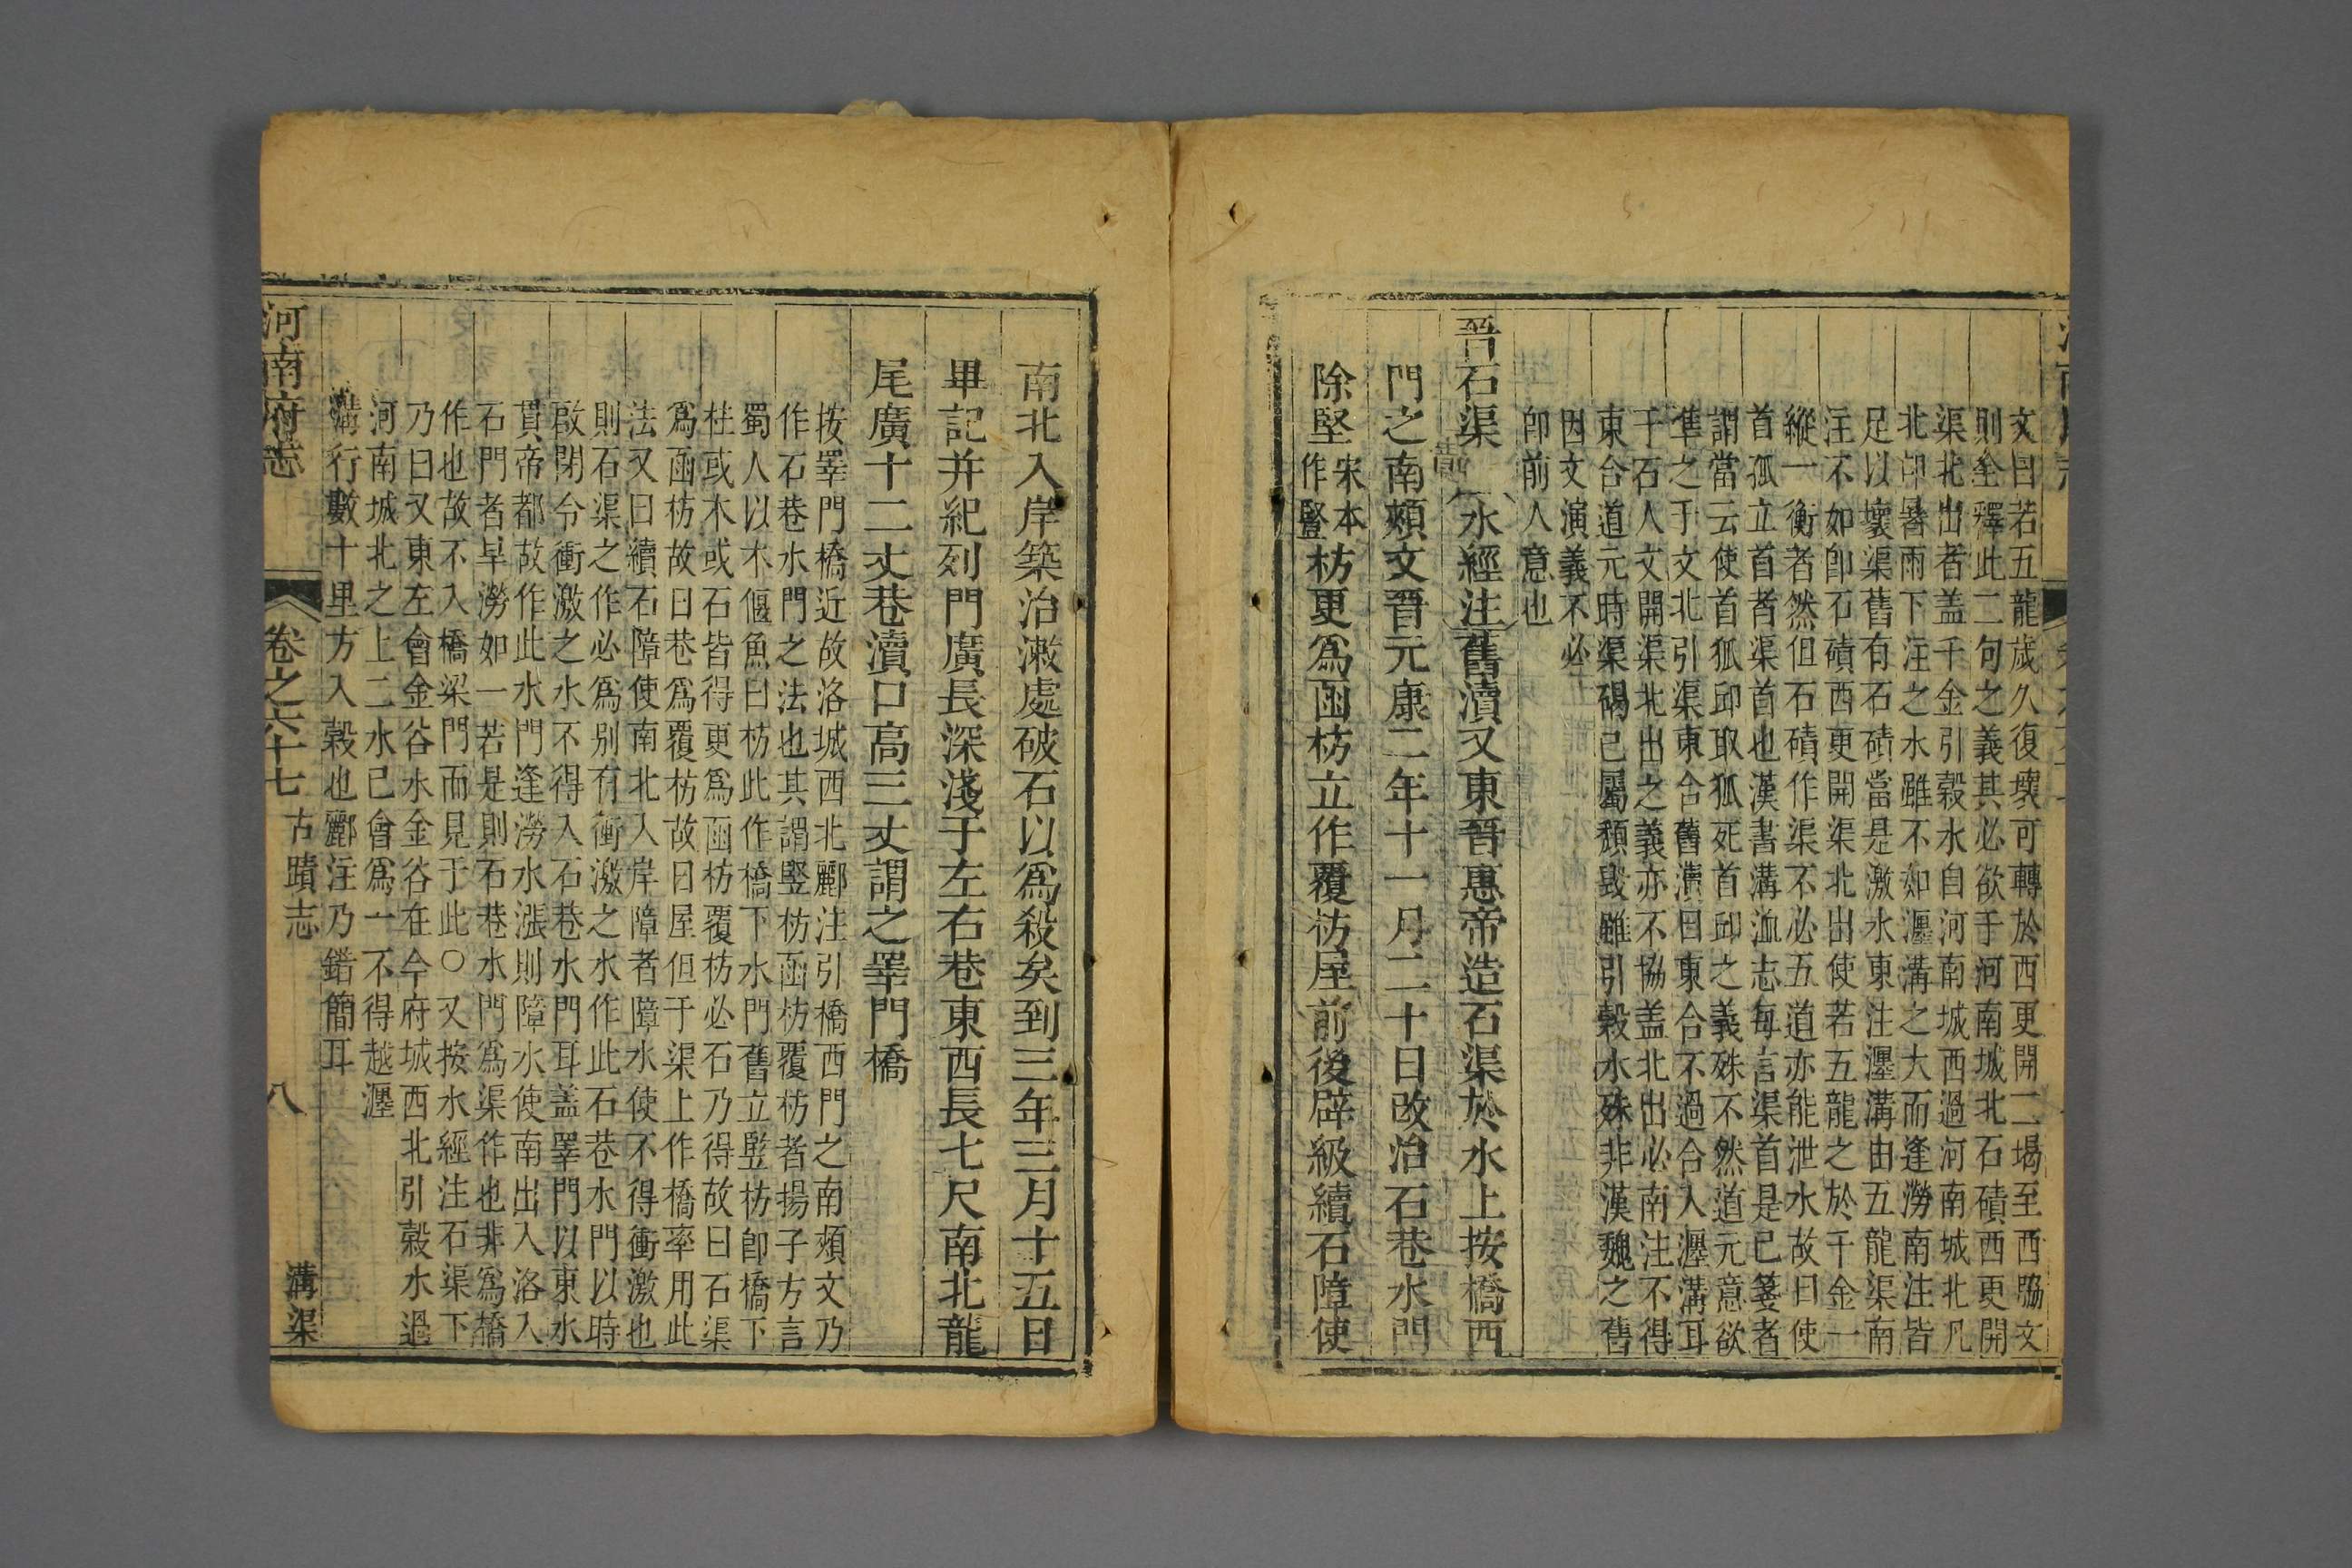 文曰若五龍歲久復壞可轉於西更開二堨至西脇文
則全釋此二句之義其必欲于河南城北石磧西更開
渠北出者盖千金引榖水自河南城西過河南城北凡
北卬暑雨下注之水雖不如瀍溝之大而逢澇南注皆
足以壞渠舊有石磧當是激水東注瀍溝由五龍渠南
注不如卽石磧西更開渠北出使若五龍之於千金一
縱一衡者然但石磧作渠不必五道亦能泄水故曰使
首孤立首者渠首也漢書溝洫志每言渠首是已箋者
謂當云使首狐邱取狐死首邱之義殊不然道元意欲
隼之于文北引渠東合舊瀆曰東合不過合入瀍溝耳
于石人文開渠北出之義亦不協盖北出必南注不得
東合道元時渠碣已屬頹毀雖引榖水殊非漢魏之舊
因文演義不必
卽前人意也
晋石渠 水經注舊瀆又東晉惠帝造石渠於水上按橋西
門之南頰文晉元康二年十一月二十日改治石巷水門
除竪宋本作豎枋更爲函枋立作覆枋屋前後辟級續石障使
南北入岸築治漱處破石以爲殺矣到三年三月十五日
畢記并紀列門廣長深淺于左右巷東西長七尺南北龍
尾廣十二丈巷瀆口高三丈謂之睪門橋
按睪門橋近故洛城西北酈注引橋西門之南頰文乃
作石巷水門之法也其謂竪枋函枋覆枋者揚子方言
蜀人以木偃魚曰枋此作橋下水門舊立竪枋卽橋下
柱或木或石皆得更爲函枋覆枋必石乃得故曰石渠
爲函枋故曰巷爲覆枋故曰屋但于渠上作橋率用此
法又曰續石障使南北入岸障者障水使不得衝激也
則石渠之作必爲別有衝激之水作此石巷水門以時
啟閉令衝激之水不得入石巷水門耳盖睪門以東水
貫帝都故作此水門逢澇水漲則障水使南出入洛入
石門者旱澇如一若是則石巷水門爲渠作也非爲橋
作也故不入橋梁門而見于此○又按水經注石渠下
乃曰又東左會金谷水金谷在今府城西北引榖水過
河南城北之上二水已會爲一不得越瀍
溝行數十里方入榖也酈注乃錯簡耳
河南府志
卷之六十七 古蹟志 溝渠
八